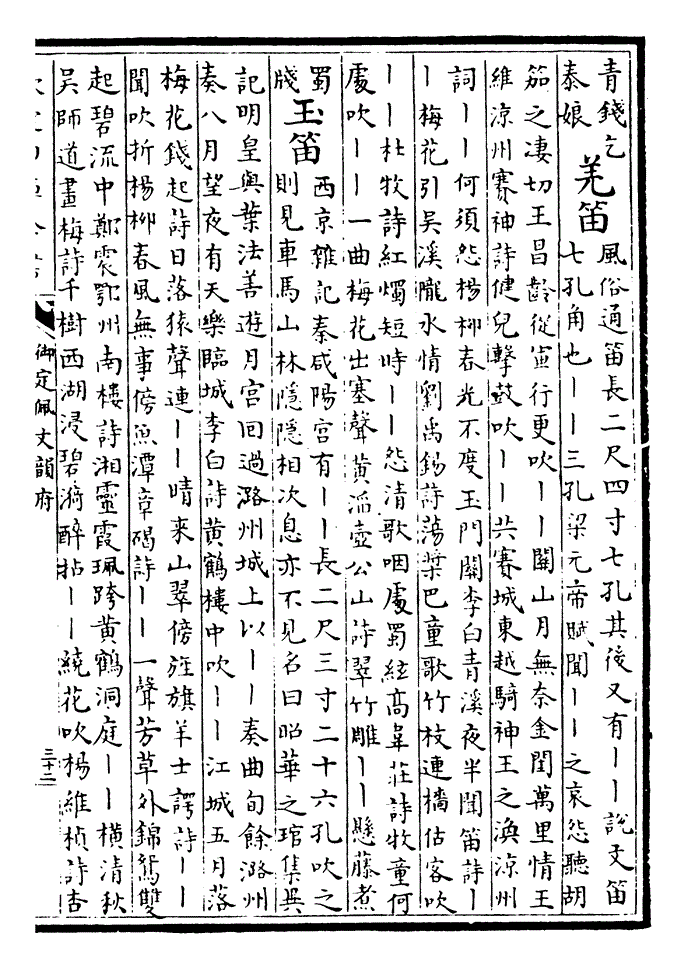 青錢乞
泰娘
羌笛
風俗通笛長二尺四寸七孔其後又有——說文笛
七孔角也——三孔梁元帝賦聞——之哀怨聽胡
笳之凄切王昌齡從軍行更吹——關山月無奈金閨萬里情王
維涼州賽神詩健兒擊鼓吹——共賽城東越騎神王之渙涼州
詞——何須怨楊柳春光不度玉門關李白青溪夜半聞笛詩—
—梅花引吳溪隴水情劉禹錫詩蕩槳巴童歌竹枝連檣估客吹
——杜牧詩紅燭短時——怨清歌咽處蜀絃高韋莊詩牧童何
處吹——一曲梅花出塞聲黃滔壺公山詩翠竹雕——懸藤煮
蜀
牋
玉笛
西京雜記秦咸陽宫有——長二尺三寸二十六孔吹之
則見車馬山林隱隱相次息亦不見名曰昭華之琯集異
記明皇與葉法善遊月宫回過潞州城上以——奏曲旬餘潞州
奏八月望夜有天樂臨城李白詩黃鶴樓中吹——江城五月落
梅花錢起詩日落猿聲連——晴来山翠傍旌旗羊士諤詩——
聞吹折楊柳春風無事傍魚潭章碣詩——一聲芳草外錦鴛雙
起碧流中鄭震鄂州南樓詩湘靈霞珮跨黃鶴洞庭——橫清秋
吳師道畫梅詩千樹西湖浸碧漪醉拈——繞花吹楊維楨詩杏
御定佩文韻府
三十二